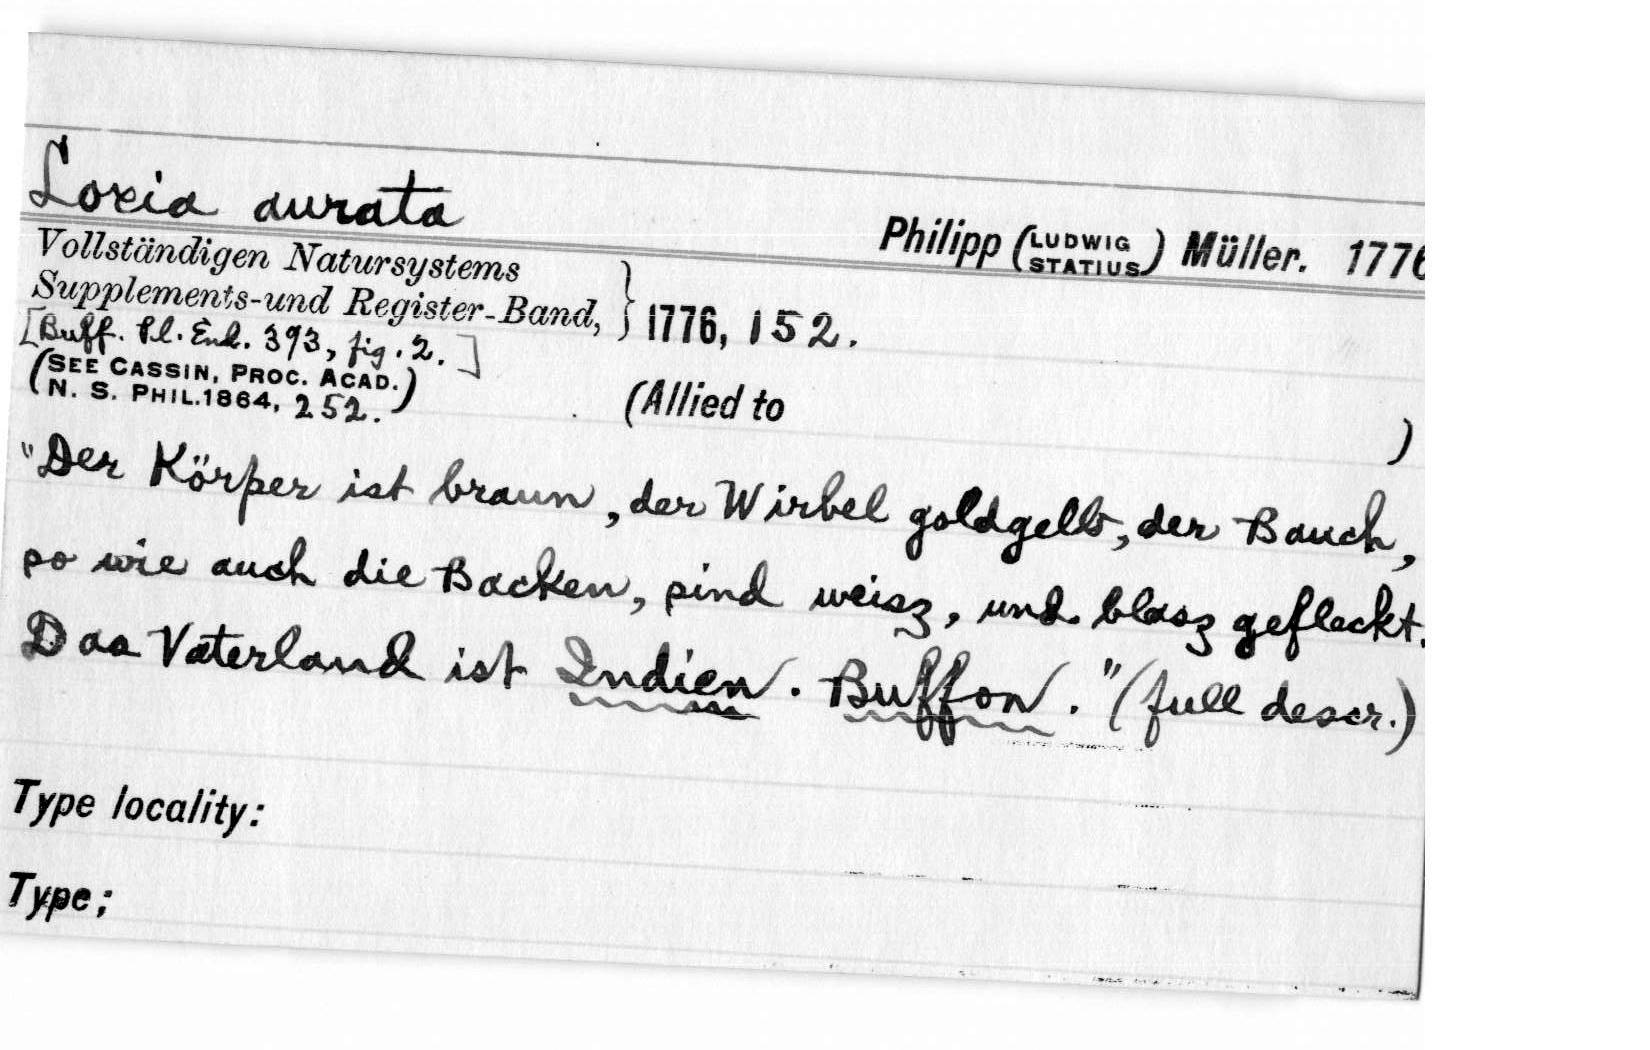 Loxia aurata
Philipp (LUDWIG STATIUS) Müller. 1776
Vollständigen Natursystems
Supplements-und Register-Band, } 1776, 152.
[Buff. Pl. Enl. 393, fig. 2.]
(SEE CASSIN, PROC. ACAD.
N. S. PHIL. 1864, 252.)
(Allied to )
"Der Körper ist braun, der Wirbel goldgelb, der Bauch,
so wie auch die Backen, sind weisz, und blasz gefleckt.
Das Vaterland ist Indien. Buffon." (full descr.)
Type locality:
Type;